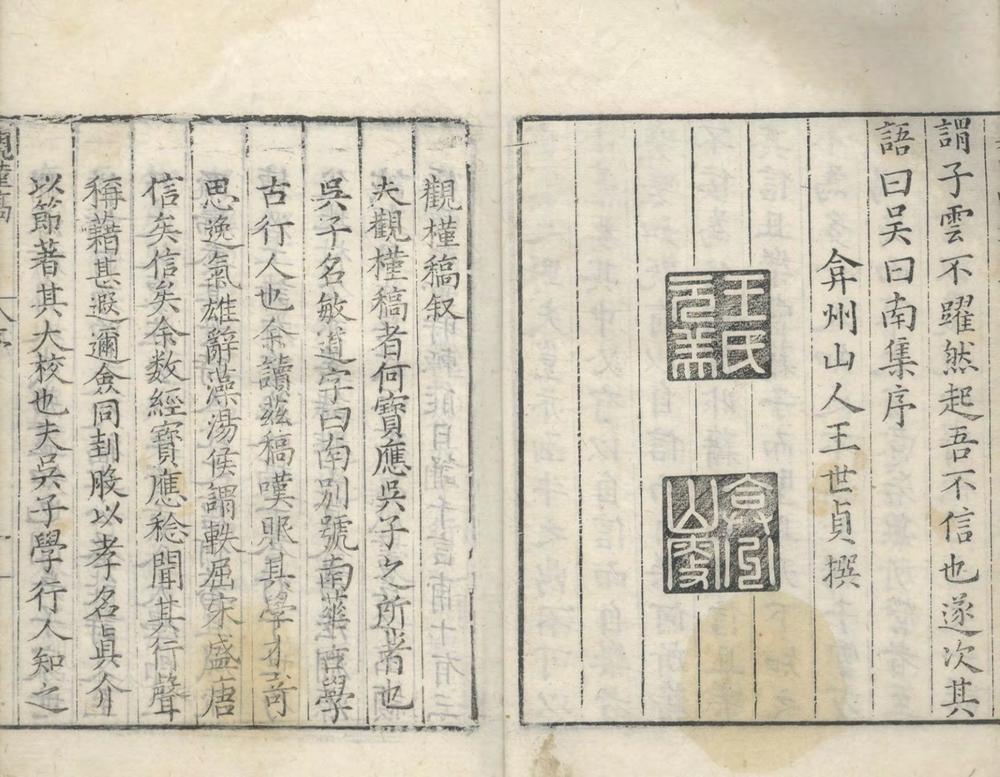 謂子雲不躍然起吾不信也遂次其
語曰吴曰南集序
弇州山人王世貞撰
王氏元美
觀槿稿叙
夫觀槿稿者何寶應吳子之所著也
吳子名敏道字曰南别號南華吉學
古行人也余讀茲稿嘆眎其學才奇
思逸氣雄辭藻湯侯謂軼屈宋盛唐
信矣信矣余数經寶應稔聞其行聲
稱藉甚遐邇僉同刲股以孝名眞介
以節著其大校也夫吳子學行人知之
觀槿稿